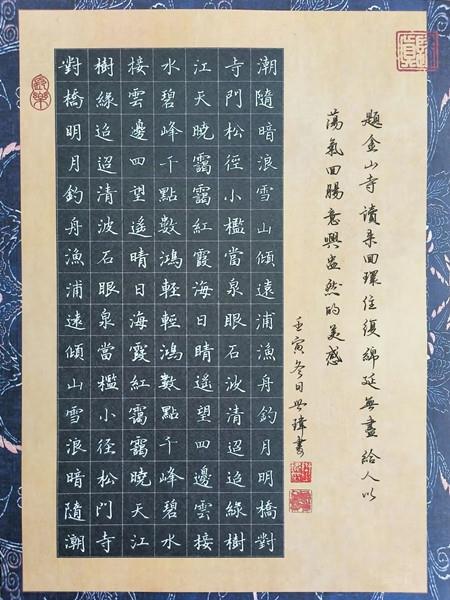 題金山寺讀来回環往復綿延無盡給人以
蕩氣回腸意興盎然的美感
壬寅冬日瑋書
潮隨暗浪雪山傾遠浦漁舟釣月明橋對
寺門松徑小檻當泉眼石波清迢迢綠樹
江天曉靄靄紅霞海日晴遙望四邊雲接
水碧峰千點數鴻輕輕鴻數點千峰碧水
接雲邊四望遙晴日海霞紅靄靄曉天江
樹綠迢迢清波石眼泉當檻小徑松門寺
對橋明月釣舟漁浦遠傾山雪浪暗隨潮